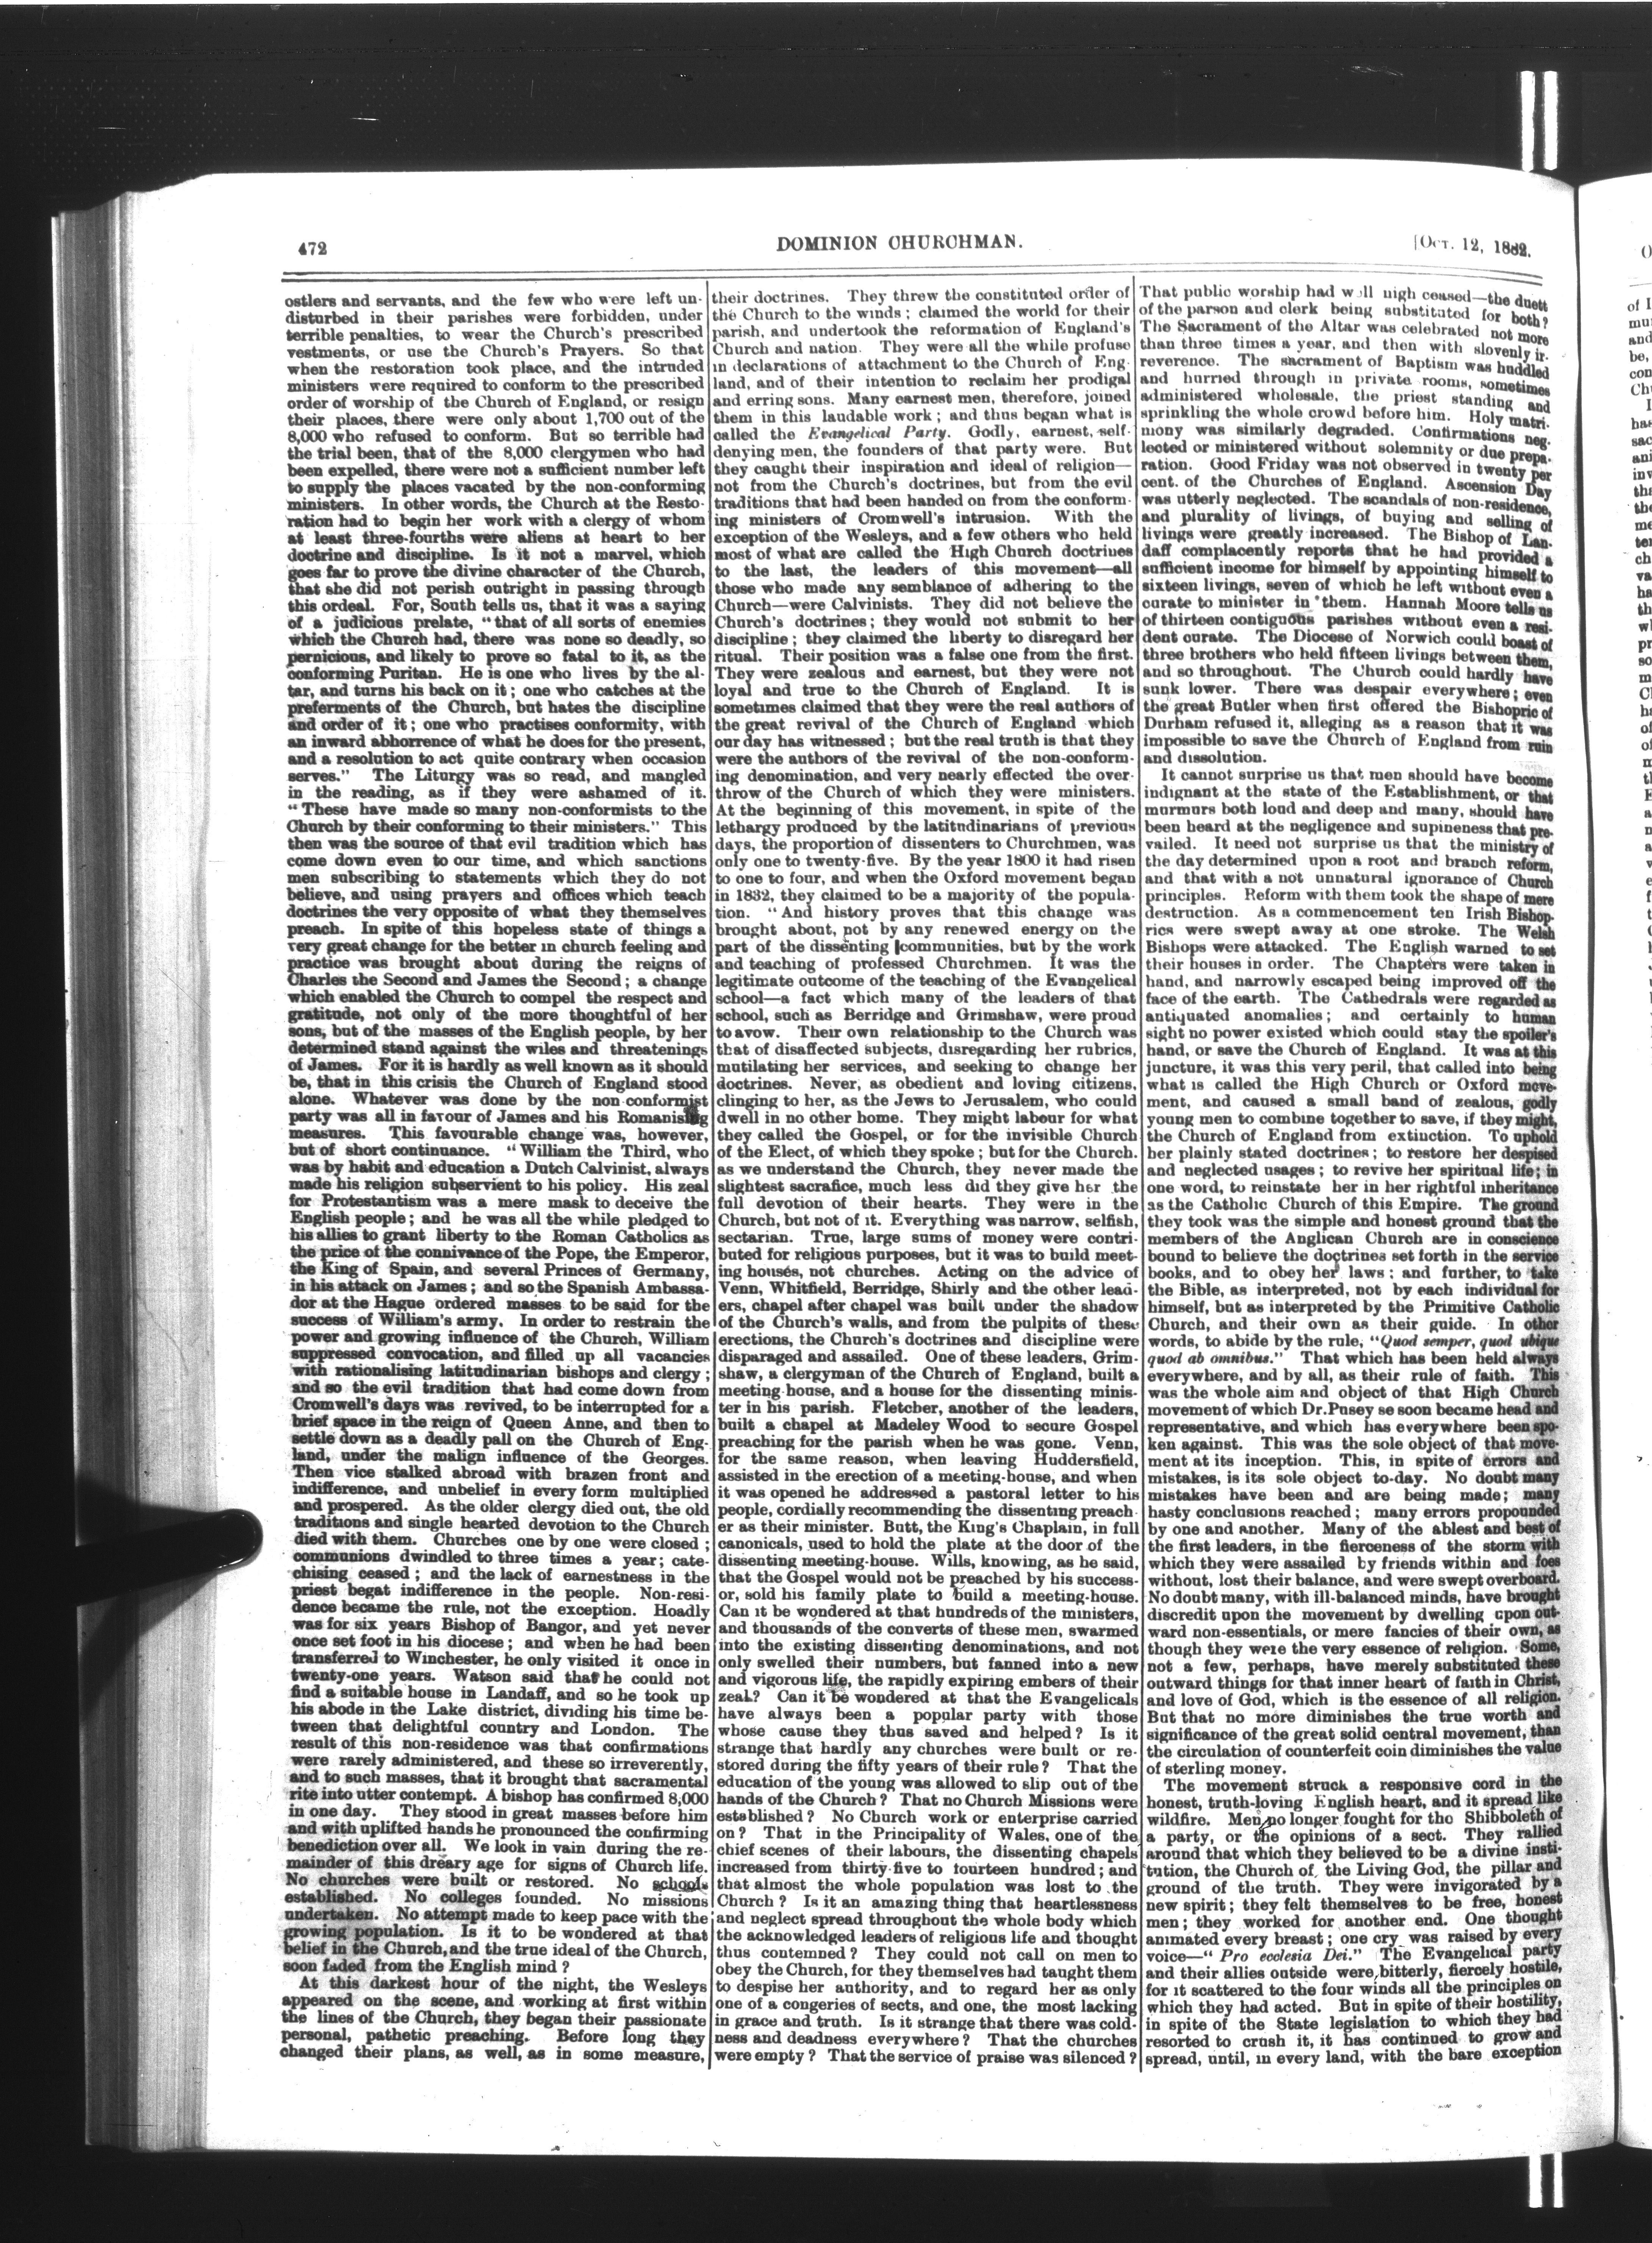 472
DOMINION CHURCHMAN.
[Oct. 12, 1882.
ostlers and servants, and the few who were left un-
disturbed in their parishes were forbidden, under
terrible penalties, to wear the Church's prescribed
vestments, or use the Church's Prayers. So that
when the restoration took place, and the intruded
ministers were required to conform to the prescribed
order of worship of the Church of England, or resign
their places, there were only about 1,700 out of the
8,000 who refused to conform. But so terrible had
the trial been, that of the 8,000 clergymen who had
been expelled, there were not a sufficient number left
to supply the places vacated by the non-conforming
ministers. In other words, the Church at the Resto-
ration had to begin her work with a clergy of whom
at least three-fourths were aliens at heart to her
doctrine and discipline. Is it not a marvel, which
goes far to prove the divine character of the Church,
that she did not perish outright in passing through
this ordeal. For, South tells us, that it was a saying
of a judicious prelate, "that of all sorts of enemies
which the Church had, there was none so deadly, so
pernicious, and likely to prove so fatal to it, as the
conforming Puritan. He is one who lives by the al-
tar, and turns his back on it; one who catches at the
preferments of the Church, but hates the discipline
and order of it; one who practises conformity, with
an inward abhorrence of what he does for the present,
and a resolution to act quite contrary when occasion
serves." The Liturgy was so read, and mangled
in the reading, as if they were ashamed of it.
"These have made so many non-conformists to the
Church by their conforming to their ministers." This
then was the source of that evil tradition which has
come down even to our time, and which sanctions
men subscribing to statements which they do not
believe, and using prayers and offices which teach
doctrines the very opposite of what they themselves
preach. In spite of this hopeless state of things a
very great change for the better in church feeling and
practice was brought about during the reigns of
Charles the Second and James the Second; a change
which enabled the Church to compel the respect and
gratitude, not only of the more thoughtful of her
sons, but of the masses of the English people, by her
determined stand against the wiles and threatenings
of James. For it is hardly as well known as it should
be, that in this crisis the Church of England stood
alone. Whatever was done by the non-conformist
party was all in favour of James and his Romanising
measures. This favourable change was, however,
but of short continuance. "William the Third, who
was by habit and education a Dutch Calvinist, always
made his religion subservient to his policy. His zeal
for Protestantism was a mere mask to deceive the
English people; and he was all the while pledged to
his allies to grant liberty to the Roman Catholics as
the price of the connivance of the Pope, the Emperor,
the King of Spain, and several Princes of Germany,
in his attack on James; and so the Spanish Ambassa-
dor at the Hague ordered masses to be said for the
success of William's army. In order to restrain the
power and growing influence of the Church, William
suppressed convocation, and filled up all vacancies
with rationalising latitudinarian bishops and clergy;
and so the evil tradition that had come down from
Cromwell's days was revived, to be interrupted for a
brief space in the reign of Queen Anne, and then to
settle down as a deadly pall on the Church of Eng-
land, under the malign influence of the Georges.
Then vice stalked abroad with brazen front and
indifference, and unbelief in every form multiplied
and prospered. As the older clergy died out, the old
traditions and single hearted devotion to the Church
died with them. Churches one by one were closed;
communions dwindled to three times a year; cate-
chising ceased; and the lack of earnestness in the
priest begat indifference in the people. Non-resi-
dence became the rule, not the exception. Hoadly
was for six years Bishop of Bangor, and yet never
once set foot in his diocese; and when he had been
transferred to Winchester, he only visited it once in
twenty-one years. Watson said that he could not
find a suitable house in Landaff, and so he took up
his abode in the Lake district, dividing his time be-
tween that delightful country and London. The
result of this non-residence was that confirmations
were rarely administered, and these so irreverently,
and to such masses, that it brought that sacramental
rite into utter contempt. A bishop has confirmed 8,000
in one day. They stood in great masses before him
and with uplifted hands he pronounced the confirming
benediction over all. We look in vain during the re-
mainder of this dreary age for signs of Church life.
No churches were built or restored. No schools
established. No colleges founded. No missions
undertaken. No attempt made to keep pace with the
growing population. Is it to be wondered at that
belief in the Church, and the true ideal of the Church,
soon faded from the English mind?
At this darkest hour of the night, the Wesleys
appeared on the scene, and working at first within
the lines of the Church, they began their passionate
personal, pathetic preaching. Before long they
changed their plans, as well, as in some measure,
their doctrines. They threw the constituted order of
the Church to the winds; claimed the world for their
parish, and undertook the reformation of England's
Church and nation. They were all the while profuse
in declarations of attachment to the Church of Eng-
land, and of their intention to reclaim her prodigal
and erring sons. Many earnest men, therefore, joined
them in this laudable work; and thus began what is
called the Evangelical Party. Godly, earnest, self-
denying men, the founders of that party were. But
they caught their inspiration and ideal of religion—
not from the Church's doctrines, but from the evil
traditions that had been handed on from the conform-
ing ministers of Cromwell's intrusion. With the
exception of the Wesleys, and a few others who held
most of what are called the High Church doctrines
to the last, the leaders of this movement—all
those who made any semblance of adhering to the
Church—were Calvinists. They did not believe the
Church's doctrines; they would not submit to her
discipline; they claimed the liberty to disregard her
ritual. Their position was a false one from the first.
They were zealous and earnest, but they were not
loyal and true to the Church of England. It is
sometimes claimed that they were the real authors of
the great revival of the Church of England which
our day has witnessed; but the real truth is that they
were the authors of the revival of the non-conform-
ing denomination, and very nearly effected the over-
throw of the Church of which they were ministers.
At the beginning of this movement, in spite of the
lethargy produced by the latitudinarians of previous
days, the proportion of dissenters to Churchmen, was
only one to twenty-five. By the year 1800 it had risen
to one to four, and when the Oxford movement began
in 1832, they claimed to be a majority of the popula-
tion. "And history proves that this change was
brought about, not by any renewed energy on the
part of the dissenting communities, but by the work
and teaching of professed Churchmen. It was the
legitimate outcome of the teaching of the Evangelical
school—a fact which many of the leaders of that
school, such as Berridge and Grimshaw, were proud
to avow. Their own relationship to the Church was
that of disaffected subjects, disregarding her rubrics,
mutilating her services, and seeking to change her
doctrines. Never, as obedient and loving citizens,
clinging to her, as the Jews to Jerusalem, who could
dwell in no other home. They might labour for what
they called the Gospel, or for the invisible Church
of the Elect, of which they spoke; but for the Church.
as we understand the Church, they never made the
slightest sacrafice, much less did they give her the
full devotion of their hearts. They were in the
Church, but not of it. Everything was narrow, selfish,
sectarian. True, large sums of money were contri-
buted for religious purposes, but it was to build meet-
ing houses, not churches. Acting on the advice of
Venn, Whitfield, Berridge, Shirly and the other lead-
ers, chapel after chapel was built under the shadow
of the Church's walls, and from the pulpits of these
erections, the Church's doctrines and discipline were
disparaged and assailed. One of these leaders, Grim-
shaw, a clergyman of the Church of England, built a
meeting-house, and a house for the dissenting minis-
ter in his parish. Fletcher, another of the leaders,
built a chapel at Madeley Wood to secure Gospel
preaching for the parish when he was gone. Venn,
for the same reason, when leaving Huddersfield,
assisted in the erection of a meeting-house, and when
it was opened he addressed a pastoral letter to his
people, cordially recommending the dissenting preach-
er as their minister. Butt, the King's Chaplain, in full
canonicals, used to hold the plate at the door of the
dissenting meeting-house. Wills, knowing, as he said,
that the Gospel would not be preached by his success-
or, sold his family plate to build a meeting-house.
Can it be wondered at that hundreds of the ministers,
and thousands of the converts of these men, swarmed
into the existing dissenting denominations, and not
only swelled their numbers, but fanned into a new
and vigorous life, the rapidly expiring embers of their
zeal? Can it be wondered at that the Evangelicals
have always been a popular party with those
whose cause they thus saved and helped? Is it
strange that hardly any churches were built or re-
stored during the fifty years of their rule? That the
education of the young was allowed to slip out of the
hands of the Church? That no Church Missions were
established? No Church work or enterprise carried
on? That in the Principality of Wales, one of the
chief scenes of their labours, the dissenting chapels
increased from thirty-five to fourteen hundred; and
that almost the whole population was lost to the
Church? Is it an amazing thing that heartlessness
and neglect spread throughout the whole body which
the acknowledged leaders of religious life and thought
thus contemned? They could not call on men to
obey the Church, for they themselves had taught them
to despise her authority, and to regard her as only
one of a congeries of sects, and one, the most lacking
in grace and truth. Is it strange that there was cold-
ness and deadness everywhere? That the churches
were empty? That the service of praise was silenced?
That public worship had well nigh ceased—the duett
of the parson and clerk being substituted for both?
The Sacrament of the Altar was celebrated not more
than three times a year, and then with slovenly ir-
reverence. The sacrament of Baptism was huddled
and hurried through in private rooms, sometimes
administered wholesale, the priest standing and
sprinkling the whole crowd before him. Holy matri-
mony was similarly degraded. Confirmations neg-
lected or ministered without solemnity or due prepa-
ration. Good Friday was not observed in twenty per
cent. of the Churches of England. Ascension Day
was utterly neglected. The scandals of non-residence,
and plurality of livings, of buying and selling of
livings were greatly increased. The Bishop of Lan-
daff complacently reports that he had provided a
sufficient income for himself by appointing himself to
sixteen livings, seven of which he left without even a
curate to minister in them. Hannah Moore tells us
of thirteen contiguous parishes without even a resi-
dent curate. The Diocese of Norwich could boast of
three brothers who held fifteen livings between them,
and so throughout. The Church could hardly have
sunk lower. There was despair everywhere; even
the great Butler when first offered the Bishopric of
Durham refused it, alleging as a reason that it was
impossible to save the Church of England from ruin
and dissolution.
It cannot surprise us that men should have become
indignant at the state of the Establishment, or that
murmurs both loud and deep and many, should have
been heard at the negligence and supineness that pre-
vailed. It need not surprise us that the ministry of
the day determined upon a root and branch reform,
and that with a not unnatural ignorance of Church
principles. Reform with them took the shape of mere
destruction. As a commencement ten Irish Bishop-
rics were swept away at one stroke. The Welsh
Bishops were attacked. The English warned to set
their houses in order. The Chapters were taken in
hand, and narrowly escaped being improved off the
face of the earth. The Cathedrals were regarded as
antiquated anomalies; and certainly to human
sight no power existed which could stay the spoiler's
hand, or save the Church of England. It was at this
juncture, it was this very peril, that called into being
what is called the High Church or Oxford move-
ment, and caused a small band of zealous, godly
young men to combine together to save, if they might,
the Church of England from extinction. To uphold
her plainly stated doctrines; to restore her despised
and neglected usages; to revive her spiritual life; in
one word, to reinstate her in her rightful inheritance
as the Catholic Church of this Empire. The ground
they took was the simple and honest ground that the
members of the Anglican Church are in conscience
bound to believe the doctrines set forth in the service
books, and to obey her laws; and further, to take
the Bible, as interpreted, not by each individual for
himself, but as interpreted by the Primitive Catholic
Church, and their own as their guide. In other
words, to abide by the rule, "Quod semper, quod ubique
quod ab omnibus." That which has been held always
everywhere, and by all, as their rule of faith. This
was the whole aim and object of that High Church
movement of which Dr. Pusey so soon became head and
representative, and which has everywhere been spo-
ken against. This was the sole object of that move-
ment at its inception. This, in spite of errors and
mistakes, is its sole object to-day. No doubt many
mistakes have been and are being made; many
hasty conclusions reached; many errors propounded
by one and another. Many of the ablest and best of
the first leaders, in the fierceness of the storm with
which they were assailed by friends within and foes
without, lost their balance, and were swept overboard.
No doubt many, with ill-balanced minds, have brought
discredit upon the movement by dwelling upon out-
ward non-essentials, or mere fancies of their own, as
though they were the very essence of religion. Some,
not a few, perhaps, have merely substituted these
outward things for that inner heart of faith in Christ,
and love of God, which is the essence of all religion.
But that no more diminishes the true worth and
significance of the great solid central movement, than
the circulation of counterfeit coin diminishes the value
of sterling money.
The movement struck a responsive cord in the
honest, truth-loving English heart, and it spread like
wildfire. Men no longer fought for the Shibboleth of
a party, or the opinions of a sect. They rallied
around that which they believed to be a divine insti-
tution, the Church of the Living God, the pillar and
ground of the truth. They were invigorated by a
new spirit; they felt themselves to be free, honest
men; they worked for another end. One thought
animated every breast; one cry was raised by every
voice—"Pro ecclesia Dei." The Evangelical party
and their allies outside were bitterly, fiercely hostile,
for it scattered to the four winds all the principles on
which they had acted. But in spite of their hostility,
in spite of the State legislation to which they had
resorted to crush it, it has continued to grow and
spread, until, in every land, with the bare exception